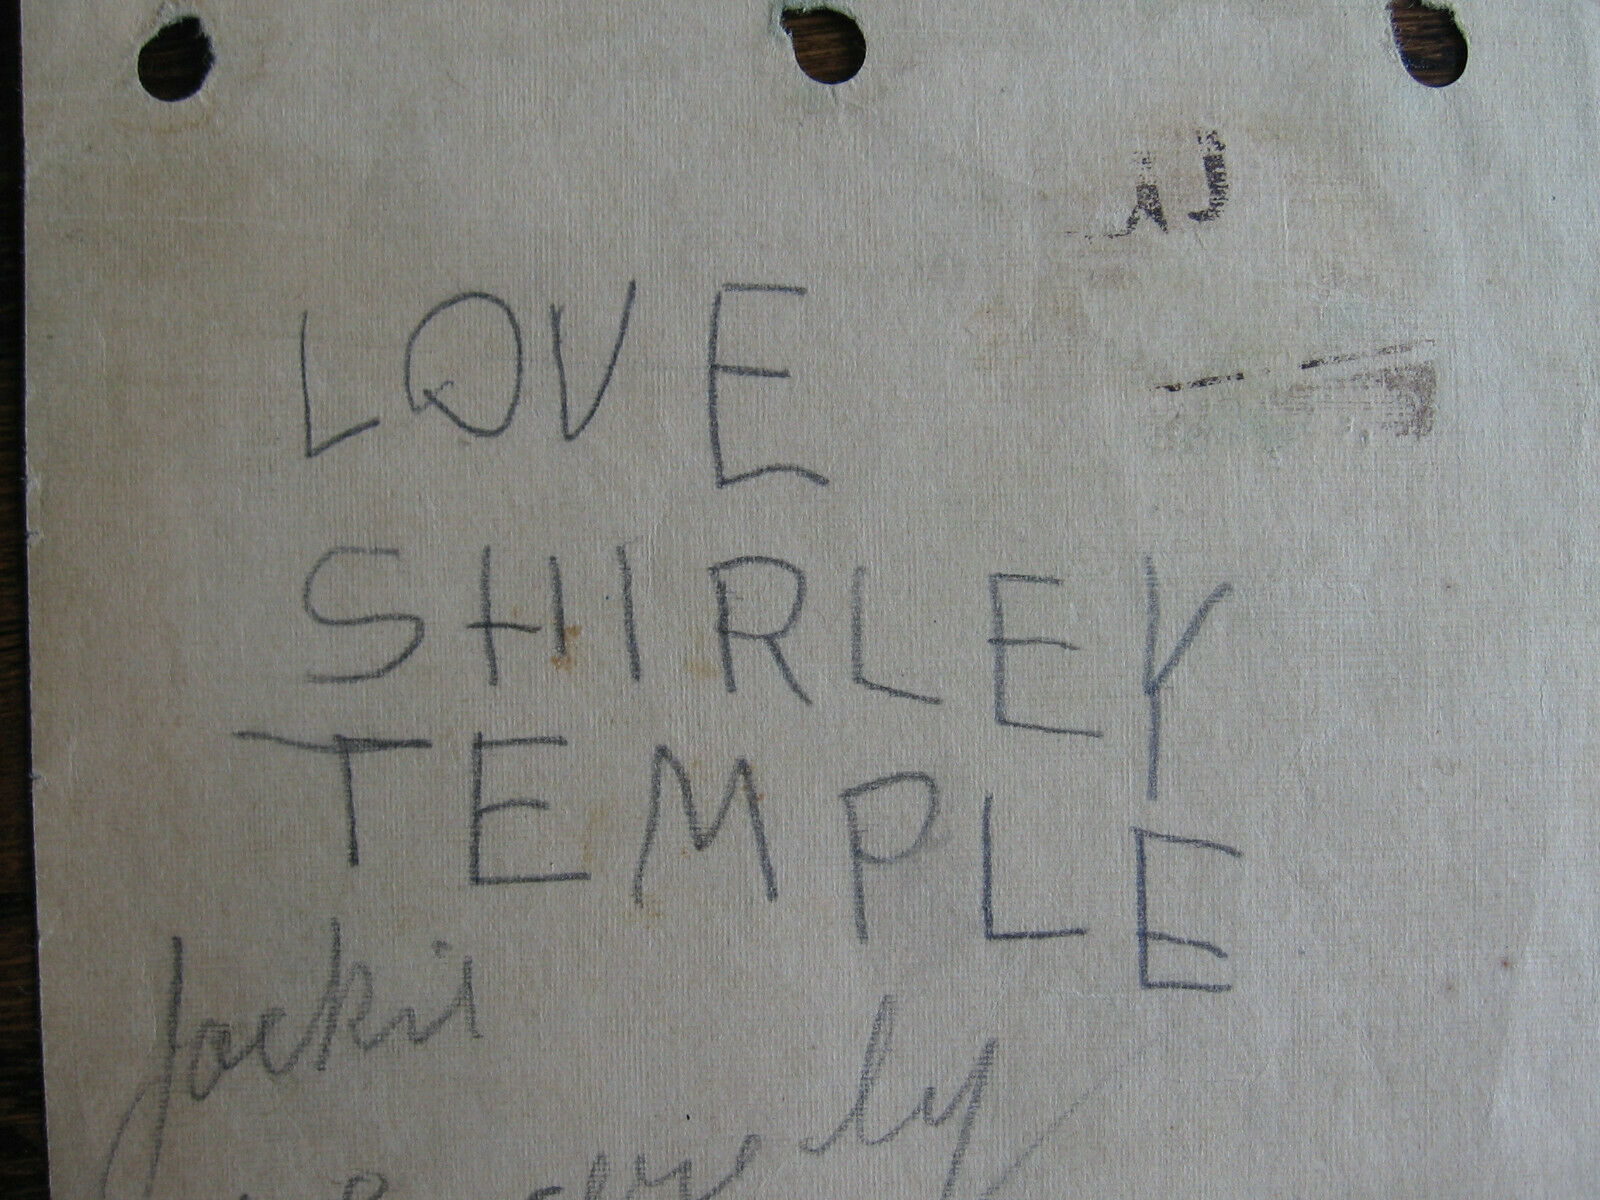 LOVE
SHIRLEY
TEMPLE
Jackie